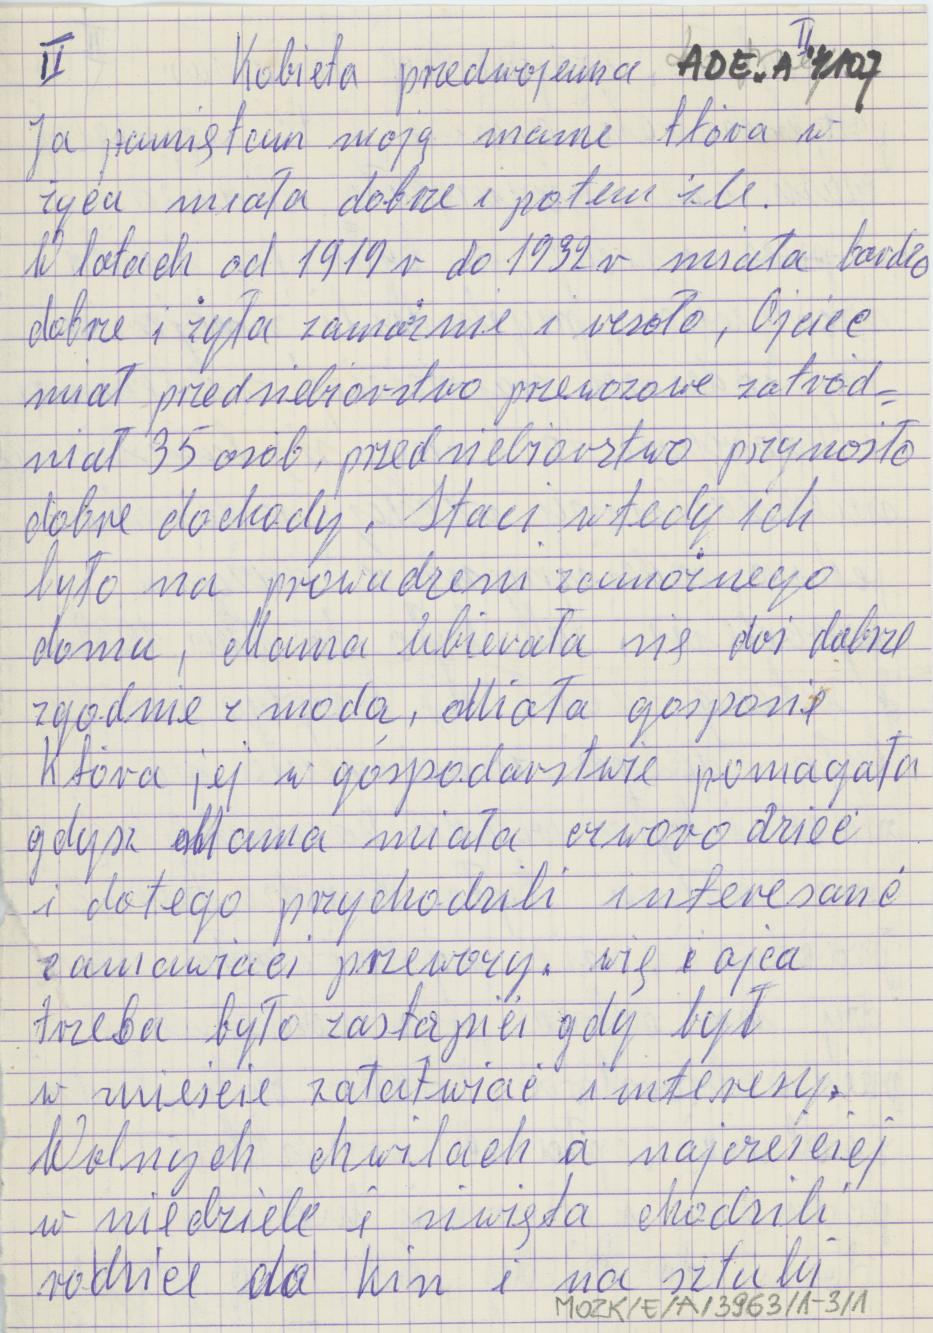 II Kobieta przedwojenna
Ja pamiętam moją mame która w
życu miała dobrze i potem źle.
W latach od 1919 r do 1932 r miała bardzo
dobrze i żyła zamożnie i vesoło, Ojciec
miał przedsiebiorstwo przewozowe zatród=
niał 35 osób, przedsiebiorstwo przynosiło
dobre dochody. Staci wtedy ich
było na prowadzeni zamożnego
domu, Mama Ubierała się doś dobrze
zgodnie z moda, Miała gosposie
Która jej w gospodarstwie pomagała
gdysz Mama miała czworo dzieć
i dotego przychodzili interesanć
zamawiaci przewozy. wię i ojca
trzeba było zastąpići gdy był
w mieście załatwiać interesy.
Wolnych chwilach a najcześciej
w niedziele i święta chodzili
rodzice do kin i na sztuki
MOZK/E/A/3963/1-3/1